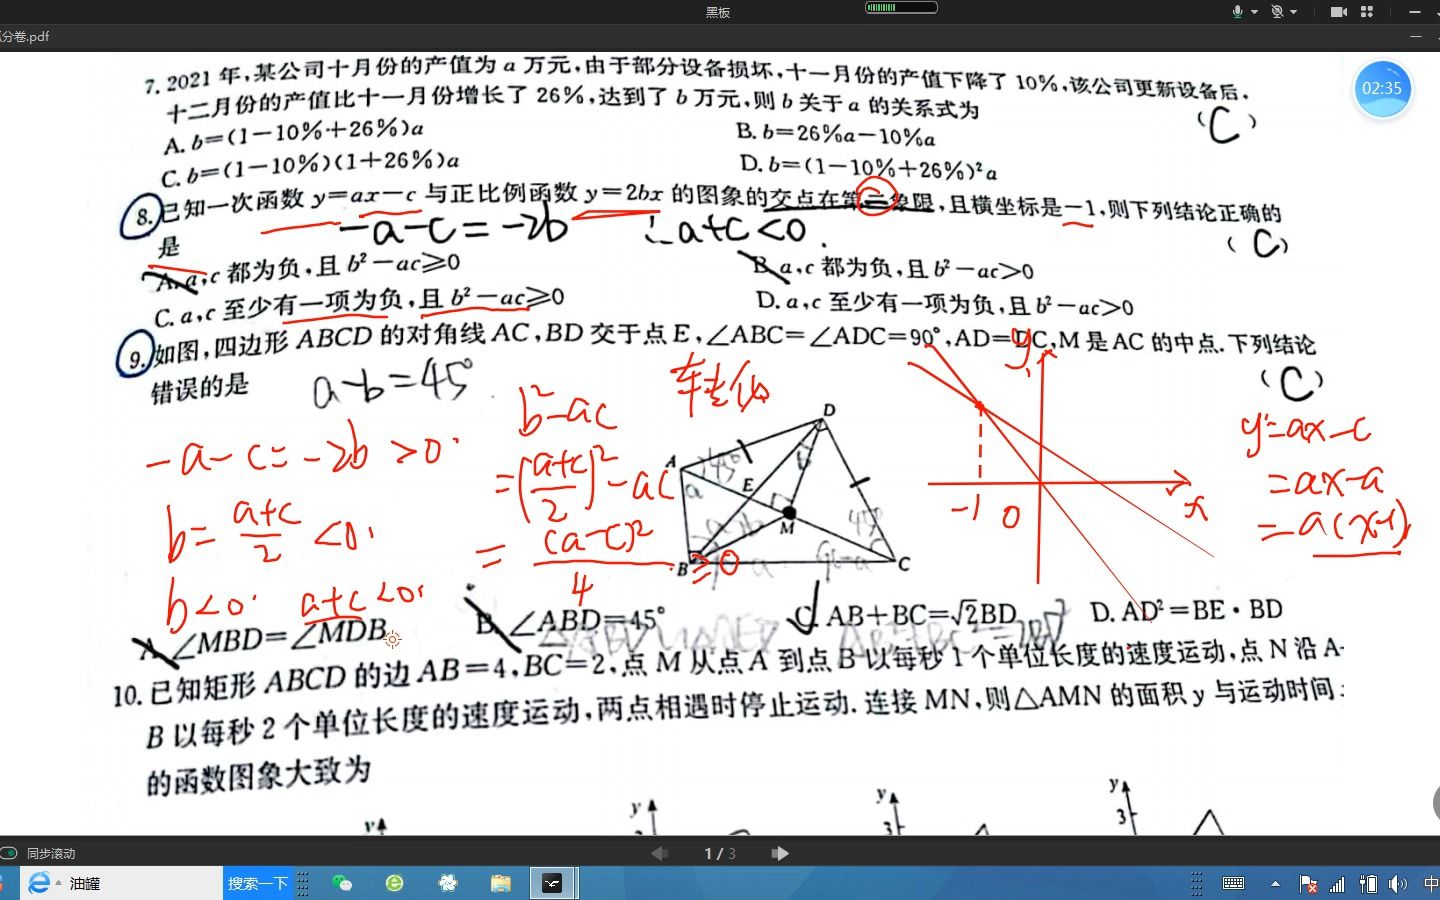 黑板
分卷.pdf
02:35
7. 2021 年,某公司十月份的产值为 a 万元,由于部分设备损坏,十一月份的产值下降了 10%,该公司更新设备后,
十二月份的产值比十一月份增长了 26%,达到了 b 万元,则 b 关于 a 的关系式为
(C)
A. b=(1-10%+26%)a
B. b=26%a-10%a
C. b=(1-10%)(1+26%)a
D. b=(1-10%+26%)²a
8. 已知一次函数 y=ax-c 与正比例函数 y=2bx 的图象的交点在第二象限,且横坐标是-1,则下列结论正确的
是
-a-c=-2b ∴a+c<0.
(C)
A. a,c 都为负,且 b²-ac≥0
B. a,c 都为负,且 b²-ac>0
C. a,c 至少有一项为负,且 b²-ac≥0
D. a,c 至少有一项为负,且 b²-ac>0
9. 如图,四边形 ABCD 的对角线 AC,BD 交于点 E,∠ABC=∠ADC=90°,AD=DC,M 是 AC 的中点.下列结论
错误的是
a-b=45°
(C)
-a-c=-2b>0.
b=a+c/2<0.
b<0. a+c<0.
b²-ac
=(a+c/2)²-ac
=(a-c)²/4≥0
A
B
C
D
E
M
45°
45°
y
x
-1
0
y=ax-c
=ax-a
=a(x-1)
A. ∠MBD=∠MDB
B. ∠ABD=45°
C. AB+BC=√2BD
D. AD²=BE·BD
10. 已知矩形 ABCD 的边 AB=4,BC=2,点 M 从点 A 到点 B 以每秒 1 个单位长度的速度运动,点 N 沿 A-
B 以每秒 2 个单位长度的速度运动,两点相遇时停止运动.连接 MN,则△AMN 的面积 y 与运动时间
的函数图象大致为
y
y
y
3
y
3
同步滚动
1 / 3
油罐
搜索一下
中